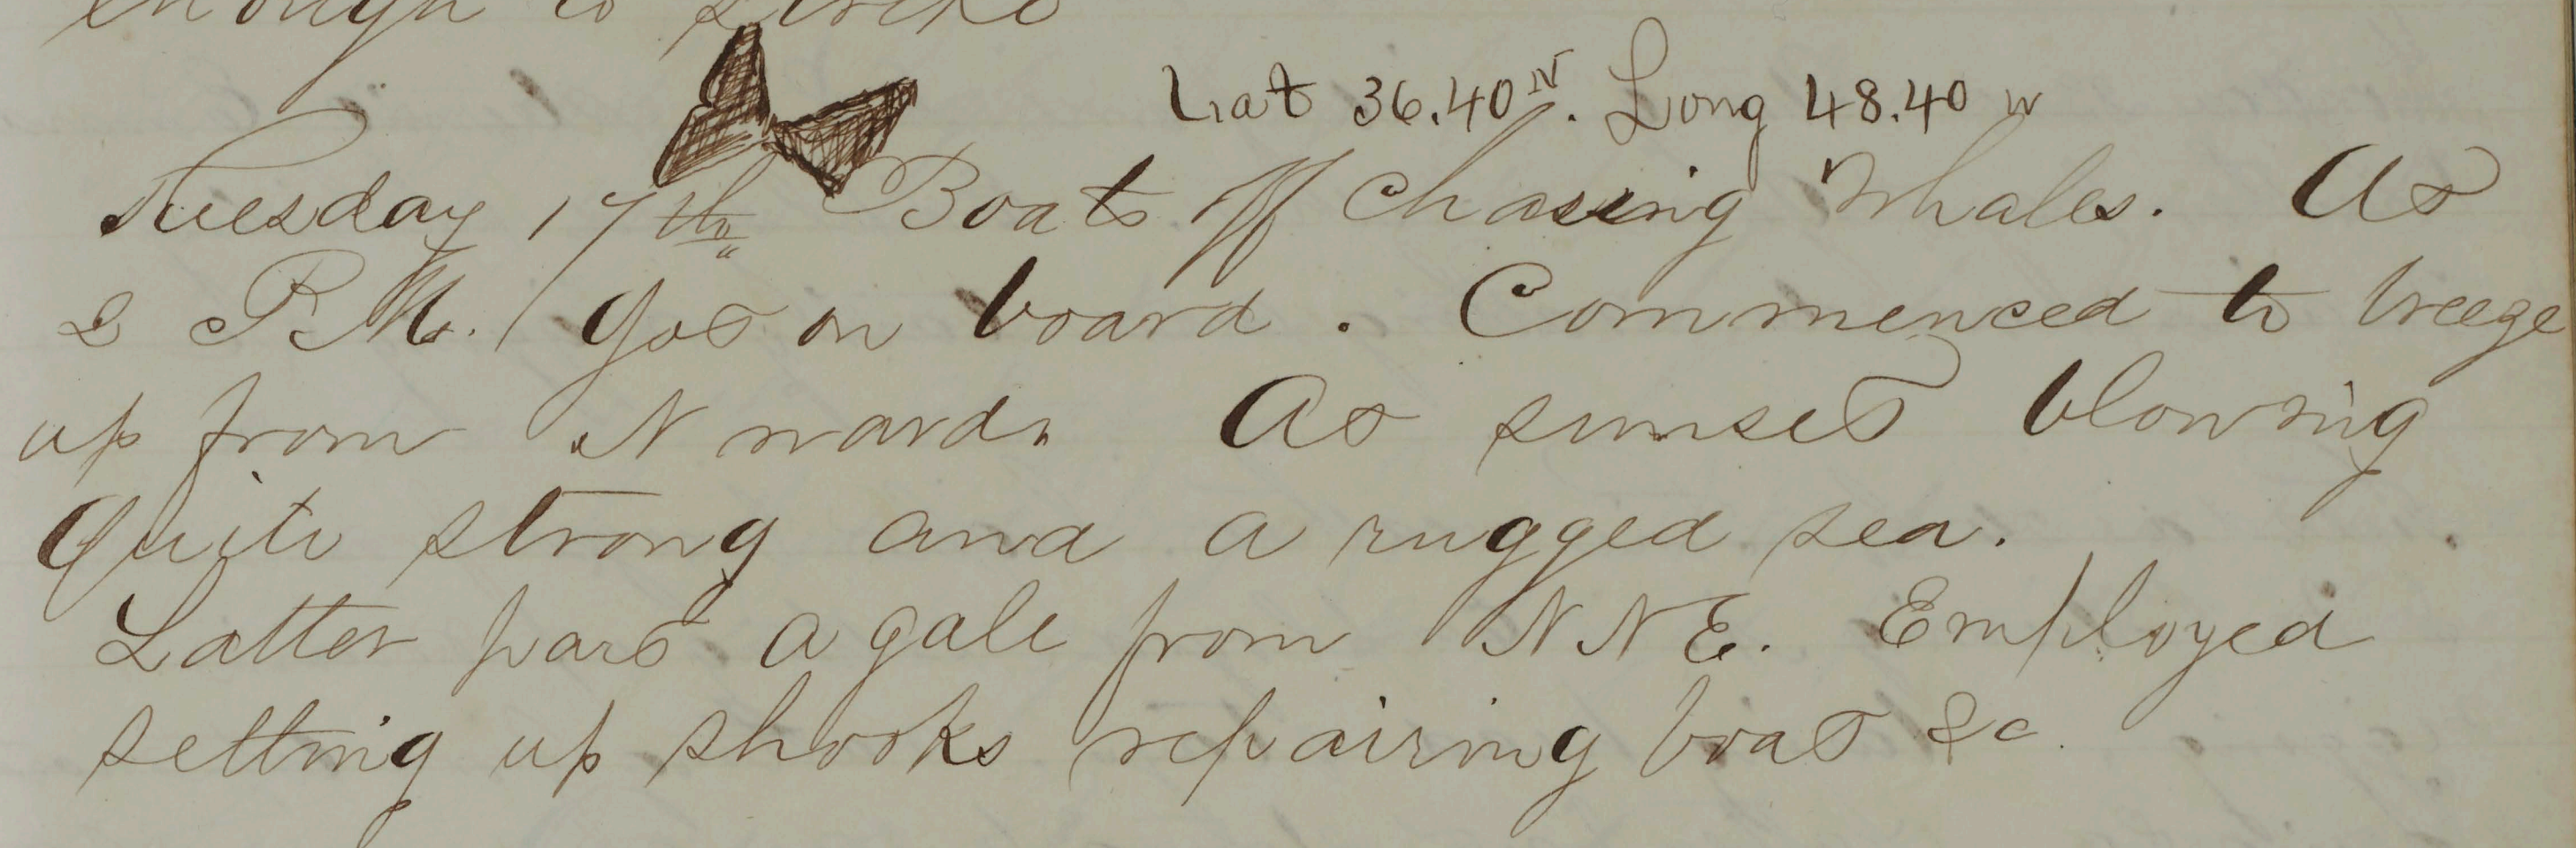 enough to strike
Lat 36.40 N. Long 48.40 W
Tuesday 17th Boats off chasing Whales. At
2 P.M. got on board. Commenced to breeze
up from N ward. At sunset blowing
quite strong and a rugged sea.
Latter part a gale from N N E. Employed
setting up shooks repairing boat &c.